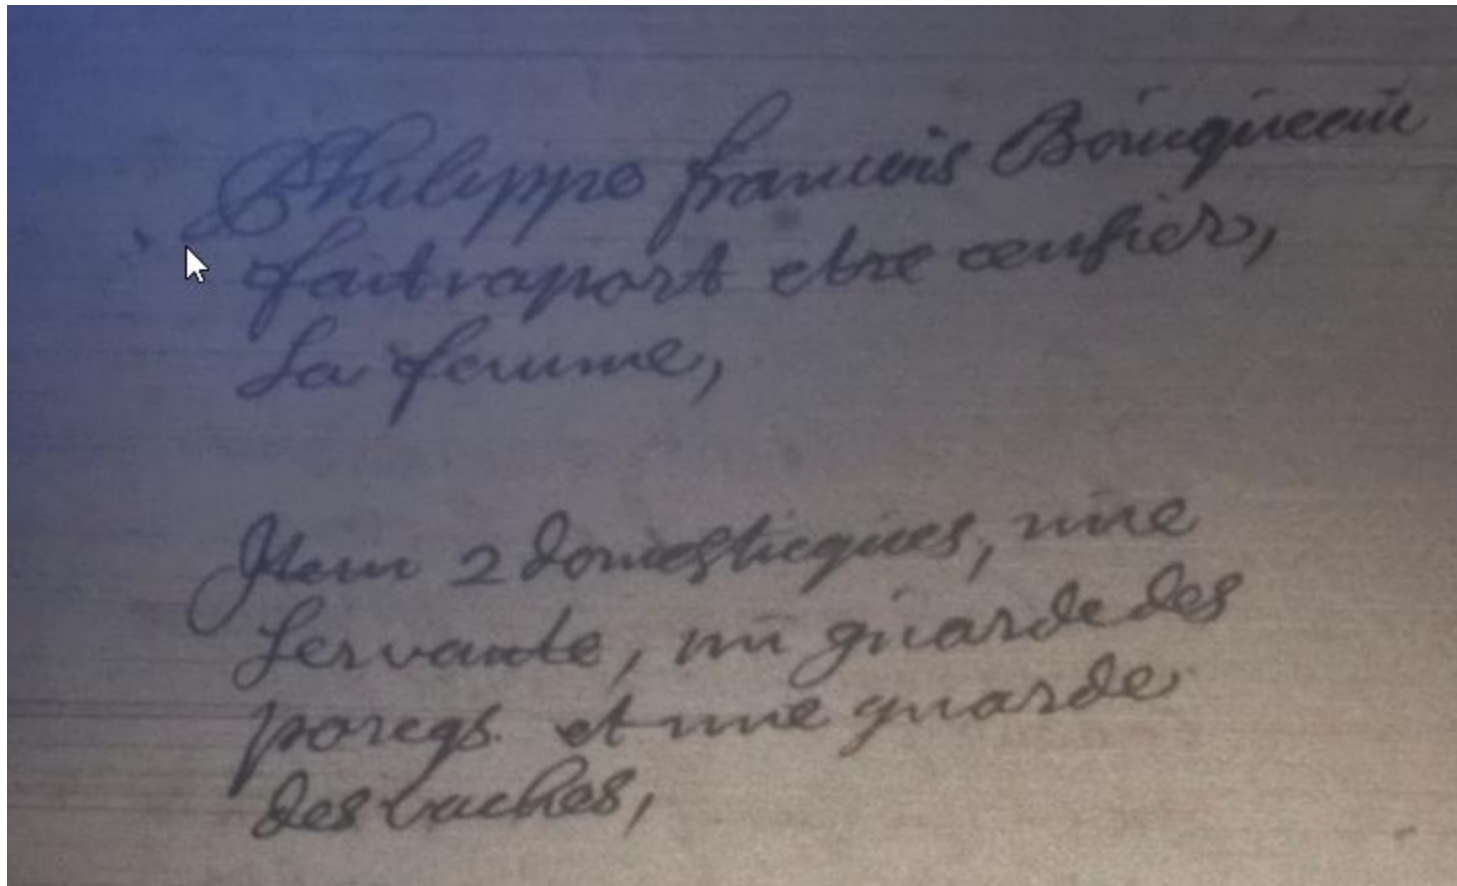 Philippe francois Bouqueau
fait raport etre censier,
sa femme,
Item 2 domesticques, une
servante, un guarde des
porcqs et une guarde
des vaches,